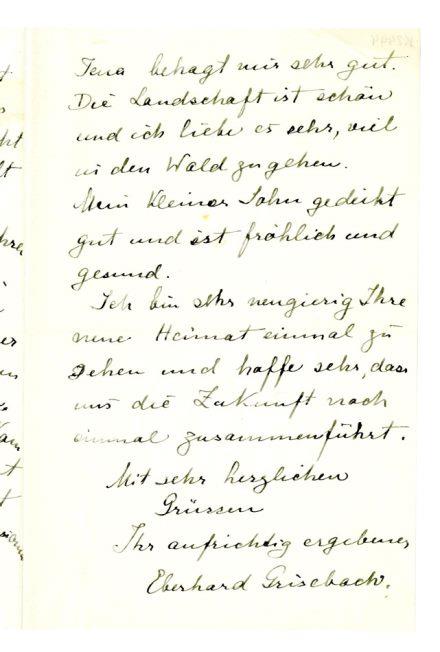 Jena behagt mir sehr gut.
Die Landschaft ist schön
und ich liebe es sehr, viel
in den Wald zu gehen.
Mein kleiner Sohn gedeiht
gut und ist fröhlich und
gesund.
Ich bin sehr neugierig Ihre
neue Heimat einmal zu
sehen und hoffe sehr, dass
uns die Zukunft noch
einmal zusammenführt.
Mit sehr herzlichen
Grüssen
Ihr aufrichtig ergebener
Eberhard Grisebach.